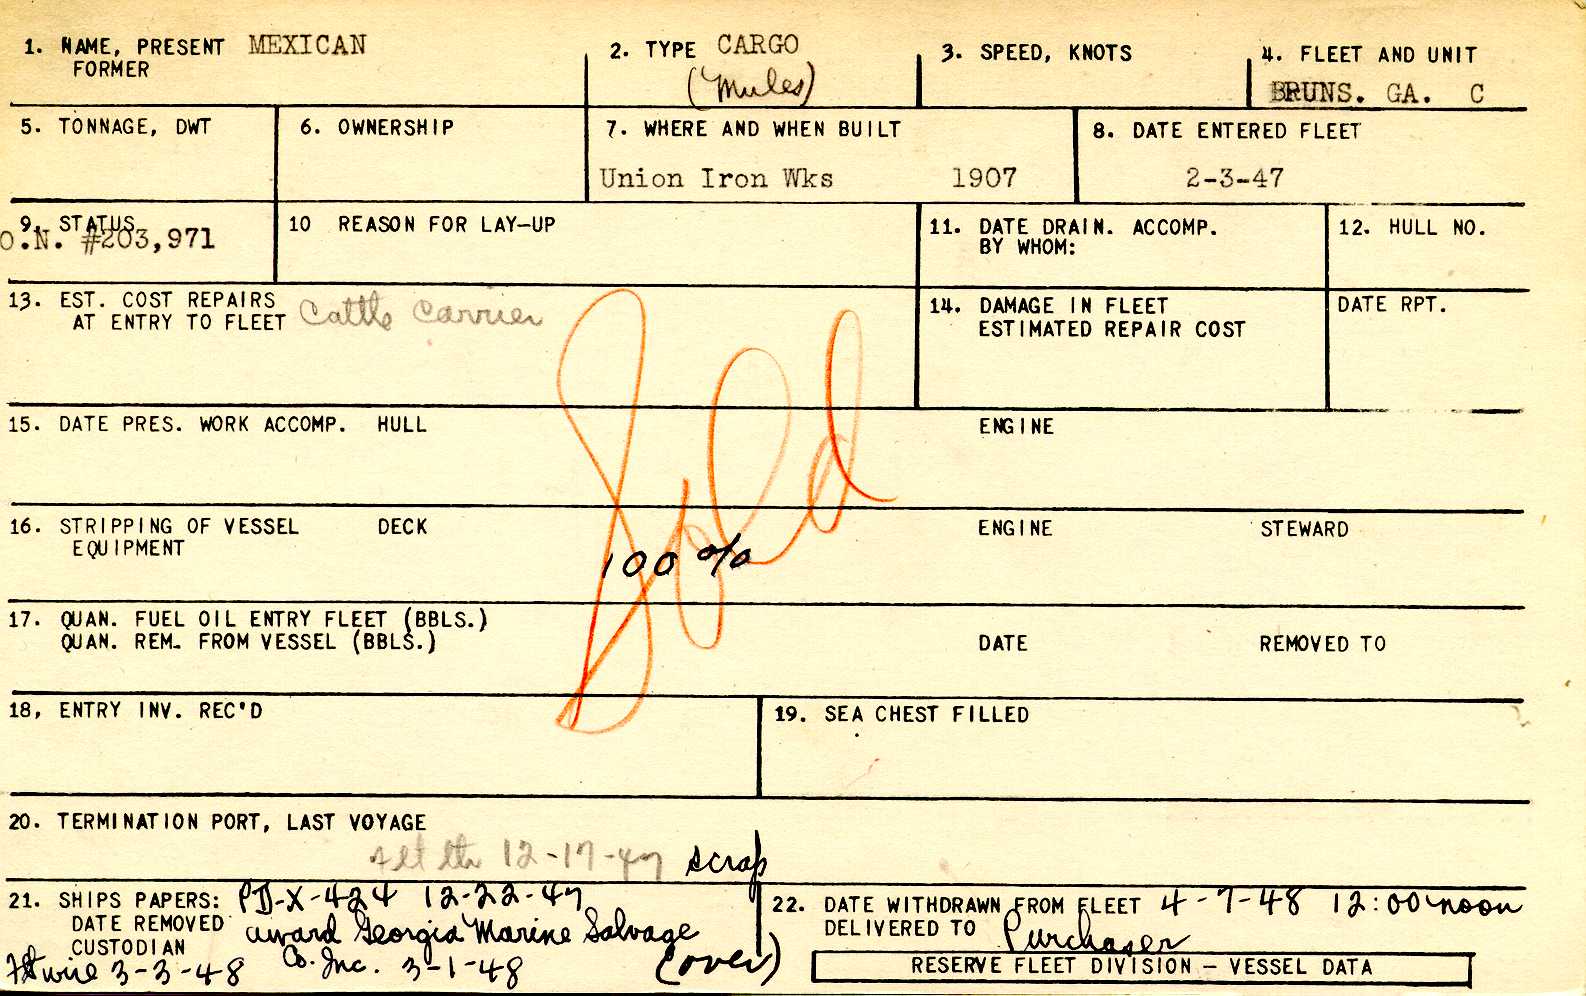 1. NAME, PRESENT MEXICAN
FORMER
2. TYPE CARGO
(Mules)
3. SPEED, KNOTS
4. FLEET AND UNIT
BRUNS. GA. C
5. TONNAGE, DWT
6. OWNERSHIP
7. WHERE AND WHEN BUILT
Union Iron Wks 1907
8. DATE ENTERED FLEET
2-3-47
9. STATUS
O.N. #203,971
10 REASON FOR LAY-UP
11. DATE DRAIN. ACCOMP.
BY WHOM:
12. HULL NO.
13. EST. COST REPAIRS
AT ENTRY TO FLEET Cattle Carrier
14. DAMAGE IN FLEET
ESTIMATED REPAIR COST
DATE RPT.
Sold
15. DATE PRES. WORK ACCOMP. HULL ENGINE
16. STRIPPING OF VESSEL DECK ENGINE STEWARD
EQUIPMENT
100%
17. QUAN. FUEL OIL ENTRY FLEET (BBLS.)
QUAN. REM. FROM VESSEL (BBLS.) DATE REMOVED TO
18, ENTRY INV. REC'D
19. SEA CHEST FILLED
20. TERMINATION PORT, LAST VOYAGE
12-17-47 scrap
21. SHIPS PAPERS: PD-X-424 12-22-47
DATE REMOVED award Georgia Marine Salvage
CUSTODIAN Co. Inc. 3-1-48 (over)
wire 3-3-48
22. DATE WITHDRAWN FROM FLEET 4-7-48 12:00 noon
DELIVERED TO Purchaser
RESERVE FLEET DIVISION — VESSEL DATA